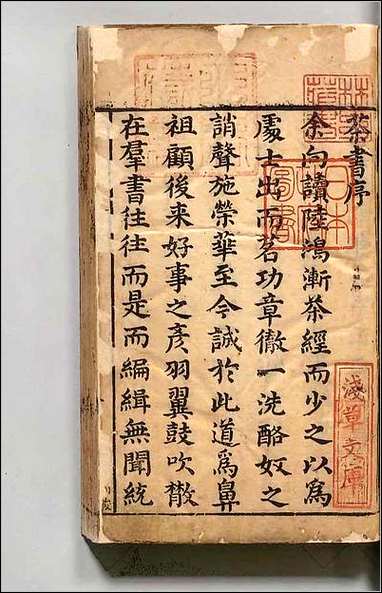 茶書序
余向讀陸鴻漸茶經而少之以爲
處士出而茗功章徹一洗酪奴之
誚聲施榮華至今誠於此道爲鼻
祖顧後来好事之彦羽翼鼓吹散
在羣書往往而是而編緝無聞統
日本
圖書
淺草文庫